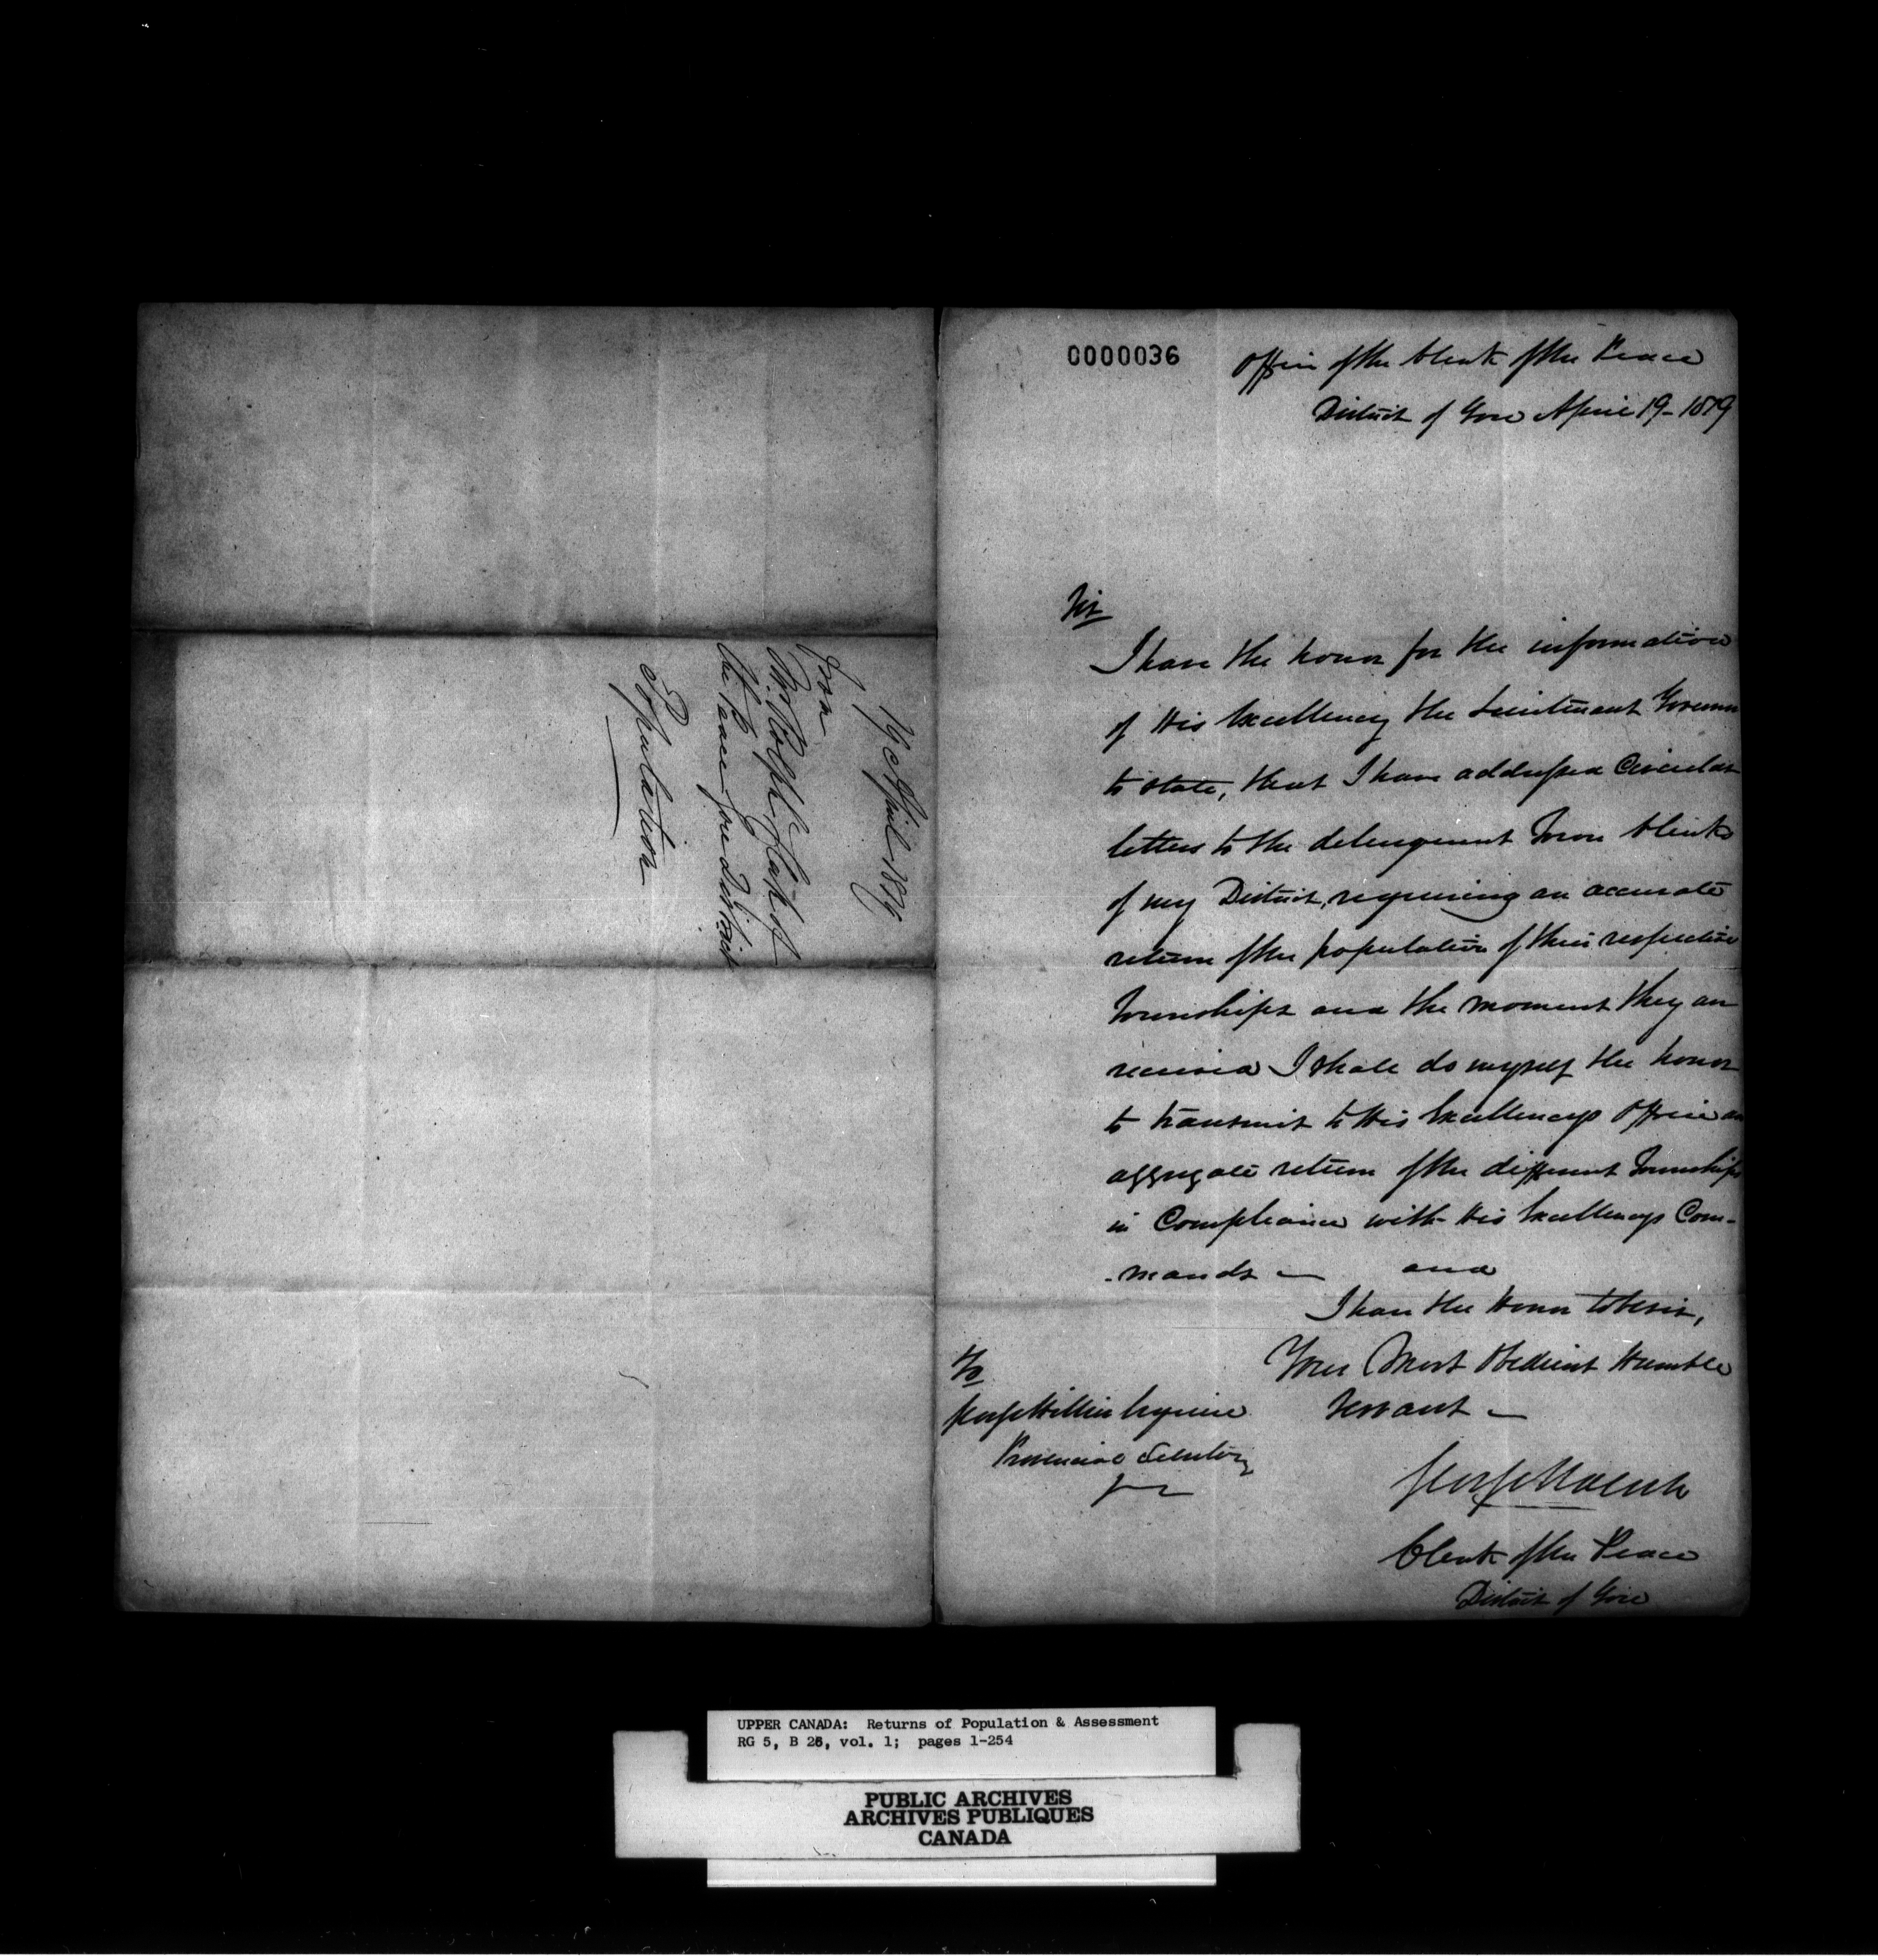 19 April 1819
From
Mr Rolph, Clerk of
the Peace Gore District
Population
0000036
Office of the Clerk of the Peace
District of Gore April 19 - 1819
Sir
I have the honor for the information
of His Excellency the Lieutenant Governor
to state, that I have addressed Circular
letters to the delenquent Town Clerks
of my District, requiring an accurate
return of the population of their respective
Townships and the moment they are
received I shall do myself the honor
to transmit to His Excellencys Office an
aggregate return of the different Townships
in Compliance with His Excellencys Com-
-mands — and
I have the Honor to be sir,
Your Most Obedient Humble
Servant —
George Rolph
Clerk of the Peace
District of Gore
To
George Hillier Esquire
Provincial Secretary
UPPER CANADA: Returns of Population & Assessment
RG 5, B 26, vol. 1; pages 1-254
PUBLIC ARCHIVES
ARCHIVES PUBLIQUES
CANADA